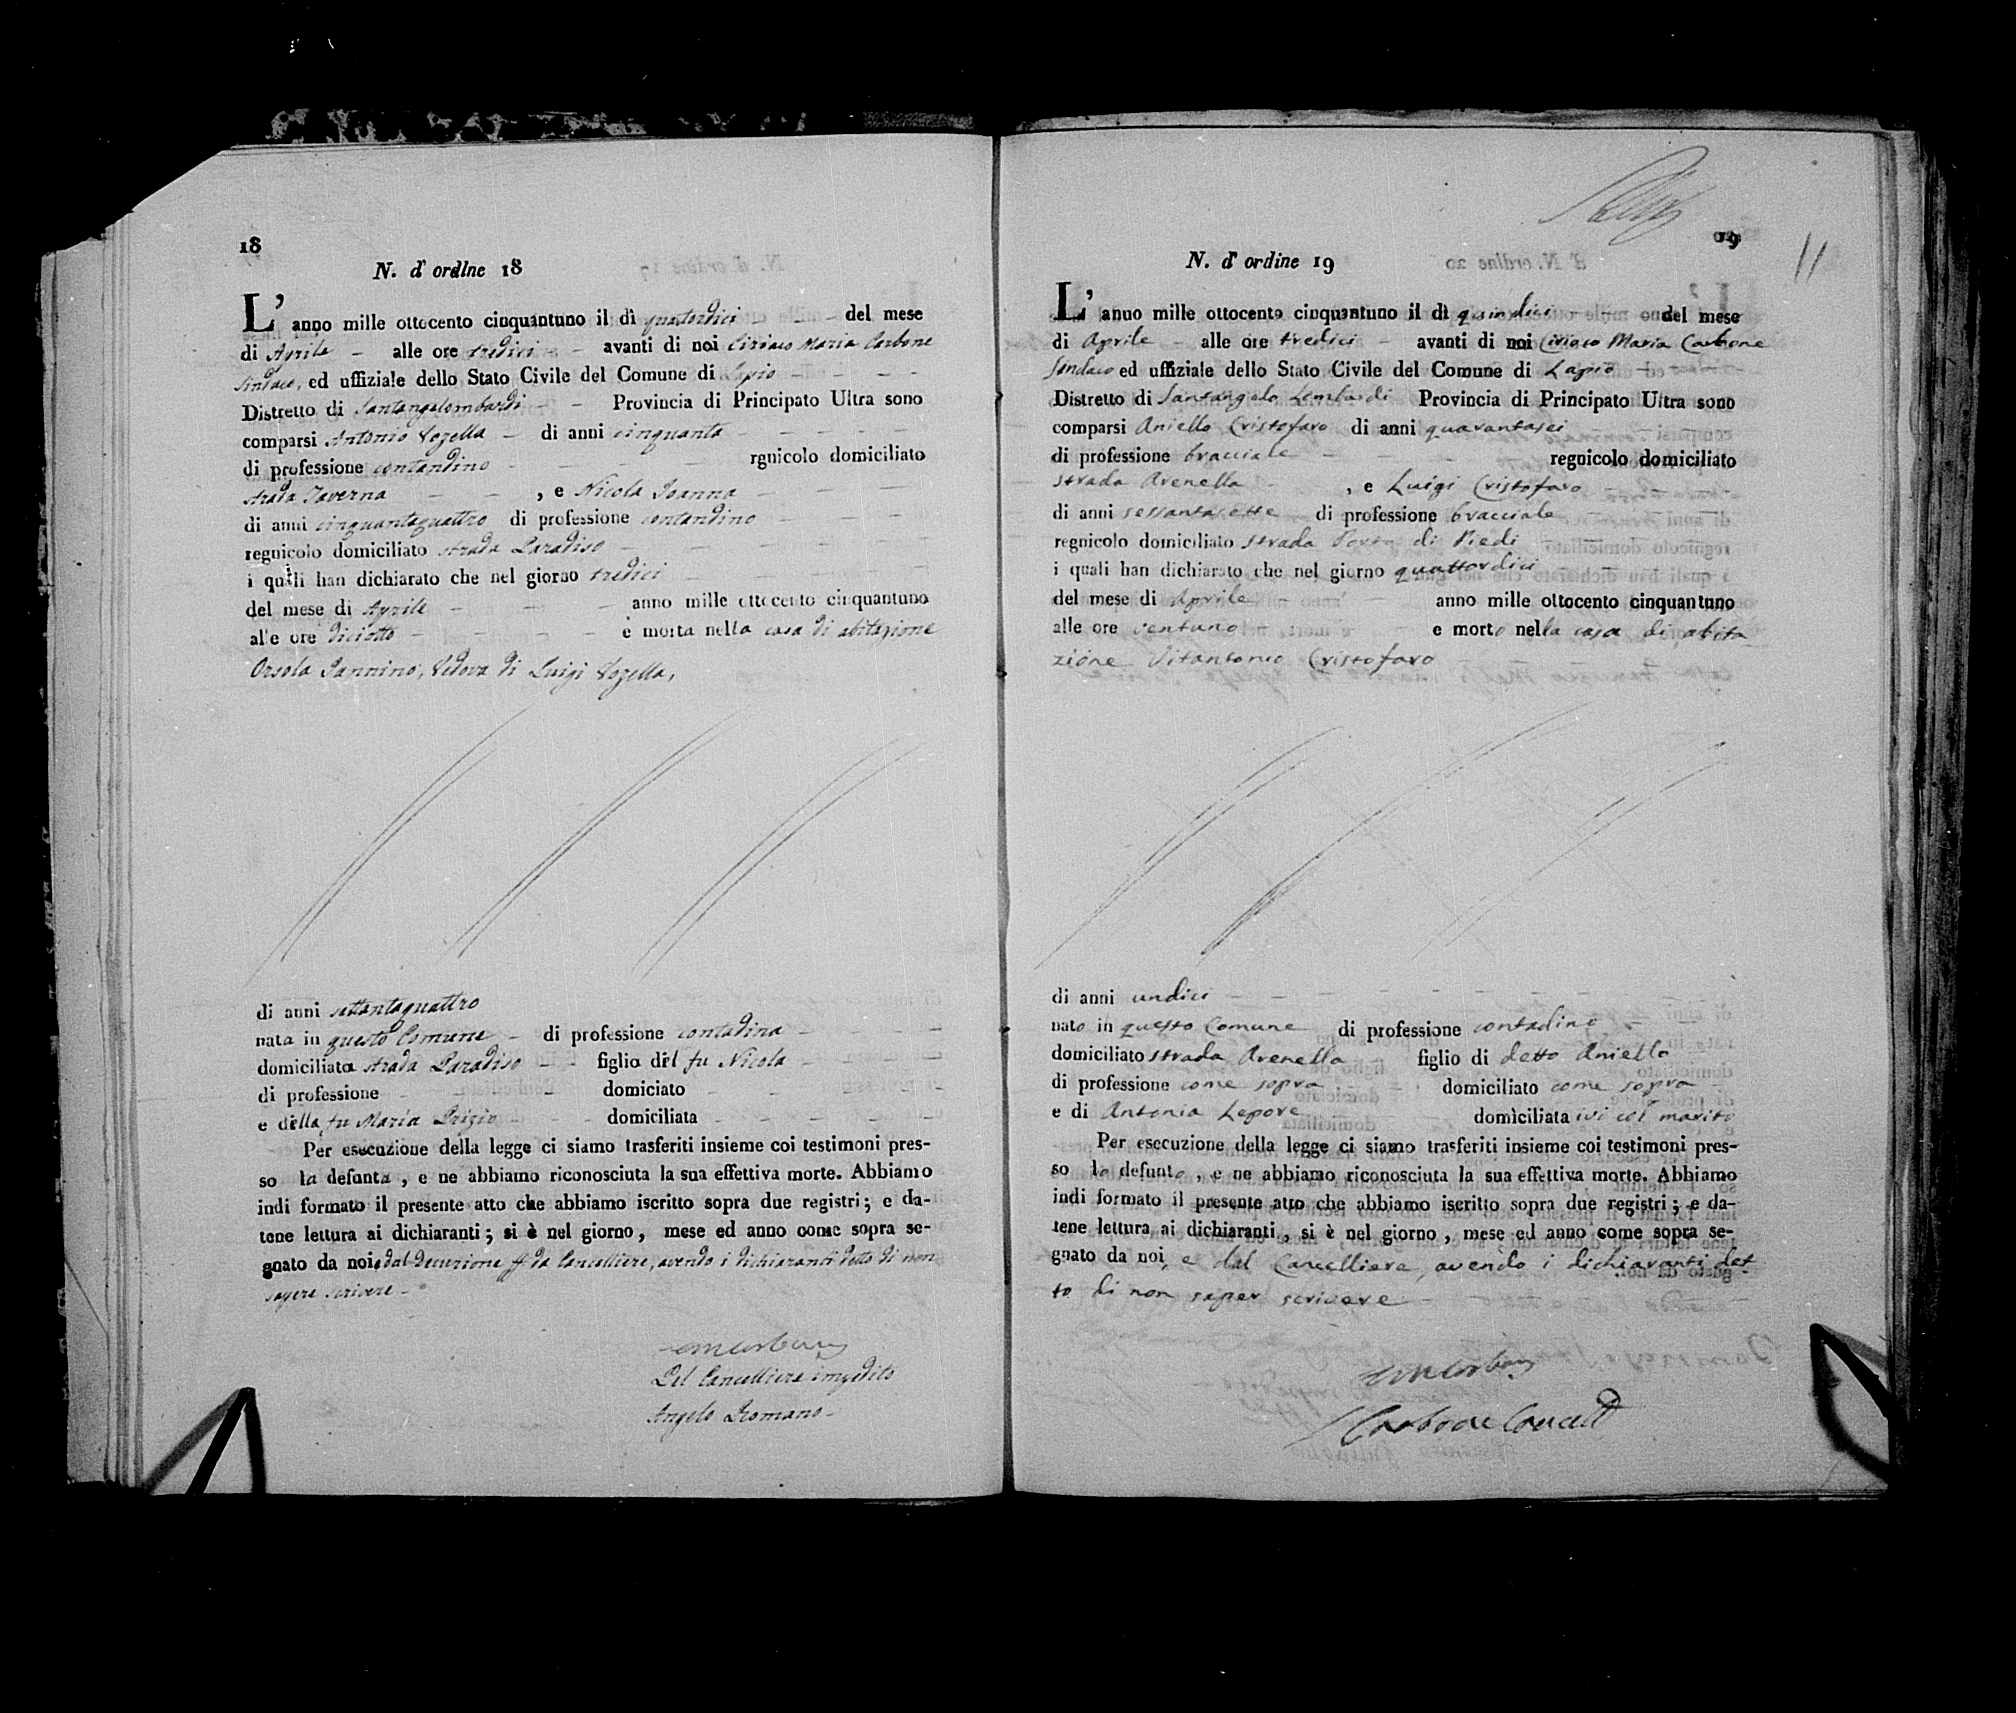 18
N. d' ordine 18
L' anno mille ottocento cinquantuno il dì quattordici del mese
di Aprile alle ore tredici avanti di noi Ciriaco Maria Carbone
Sindaco, ed uffiziale dello Stato Civile del Comune di Lapio
Distretto di Santangelombardi Provincia di Principato Ultra sono
comparsi Antonio Vozella di anni cinquanta
di professione contandino rgnicolo domiciliato
strada Taverna , e Nicola Ioanna
di anni cinquantaquattro di professione contandino
regnicolo domiciliato strada Paradiso
i quali han dichiarato che nel giorno tredici
del mese di Aprile anno mille ottocento cinquantuno
alle ore diciotto è morta nella casa di abitazione
Orsola Iannino, Vedova di Luigi Vozella,
di anni settantaquattro
nata in questo Comune di professione contadina
domiciliata strada Paradiso figlia del fu Nicola
di professione domiciato
e della fu Maria Prizio domiciliata
Per esecuzione della legge ci siamo trasferiti insieme coi testimoni pres-
so la defunta , e ne abbiamo riconosciuta la sua effettiva morte. Abbiamo
indi formato il presente atto che abbiamo iscritto sopra due registri ; e da-
tene lettura ai dichiaranti ; si è nel giorno , mese ed anno come sopra se-
gnato da noi, e dal Decurione ff da Cancelliere, avendo i dichiaranti detto di non
sapere scrivere
Pel Cancelliere impedito
Angelo Romano
19
11
N. d' ordine 19
L' anno mille ottocento cinquantuno il dì quindici del mese
di Aprile alle ore tredici avanti di noi Ciriaco Maria Carbone
Sindaco ed uffiziale dello Stato Civile del Comune di Lapio
Distretto di Santangelo Lombardi Provincia di Principato Ultra sono
comparsi Aniello Cristofaro di anni quarantasei
di professione bracciale regnicolo domiciliato
strada Arenella , e Luigi Cristofaro
di anni sessantasette di professione bracciale
regnicolo domiciliato strada di Piedi
i quali han dichiarato che nel giorno quattordici
del mese di Aprile anno mille ottocento cinquantuno
alle ore ventuno e morto nella casa di abita
zione Vitantonio Cristofaro
di anni undici
nato in questo Comune di professione contadino
domiciliato strada Arenella figlio di detto Aniello
di professione come sopra domiciliato come sopra
e di Antonia Lepore domiciliata ivi col marito
Per esecuzione della legge ci siamo trasferiti insieme coi testimoni pres-
so lo defunto , e ne abbiamo riconosciuta la sua effettiva morte. Abbiamo
indi formato il presente atto che abbiamo iscritto sopra due registri ; e da-
tene lettura ai dichiaranti , si è nel giorno , mese ed anno come sopra se-
gnato da noi, e dal Cancelliere, avendo i dichiaranti det-
to di non saper scrivere
Carbone Cancell